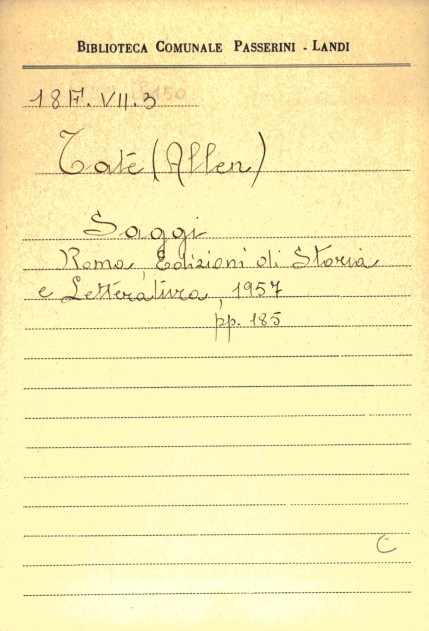 BIBLIOTECA COMUNALE PASSERINI - LANDI
18 F. VII. 3
Tate (Allen)
Saggi
Roma, Edizioni di Storia
e Letteratura, 1957
pp. 185
C